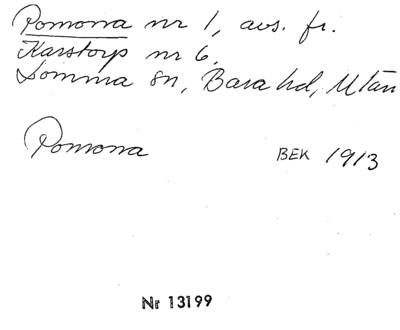 Pomona nr 1, avs. fr.
Karstorp nr 6,
Lomma sn, Bara hd, M län
Pomona
BEK 1913
Nr 13199